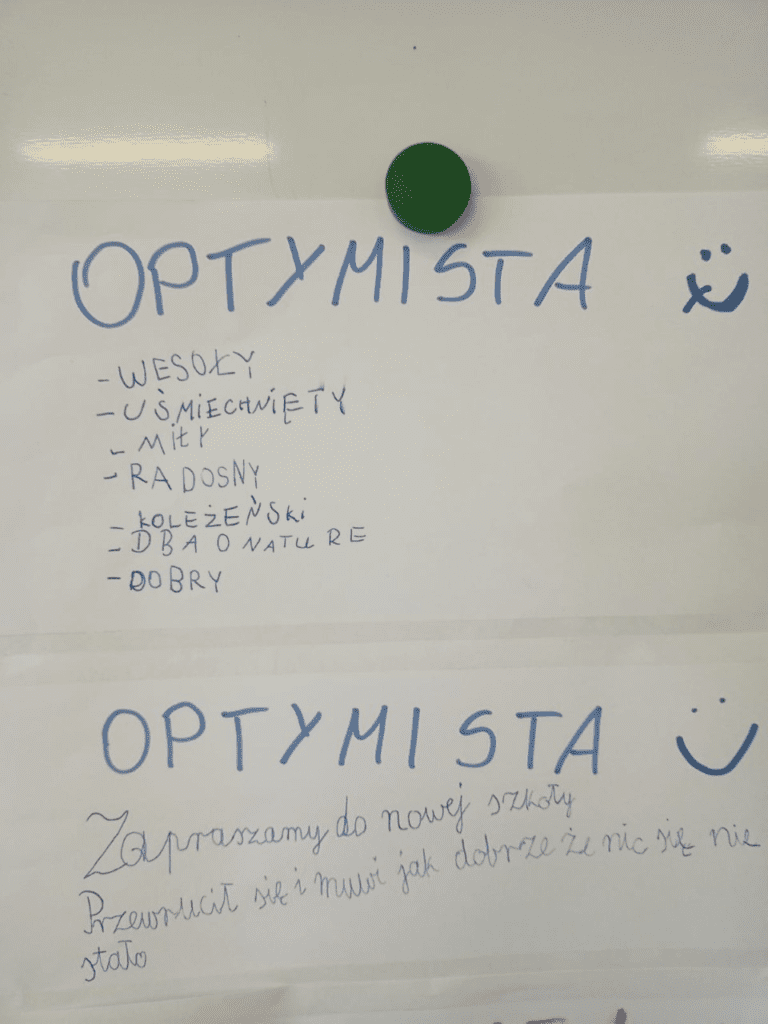 OPTYMISTA
- WESOŁY
- UŚMIECHNIĘTY
- MIŁY
- RADOSNY
- KOLEŻEŃSKi
- DBA O NATURE
- DOBRY
OPTYMISTA
Zapraszamy do nowej szkoły
Przewrucił się i muwi jak dobrze że nic się nie
stało